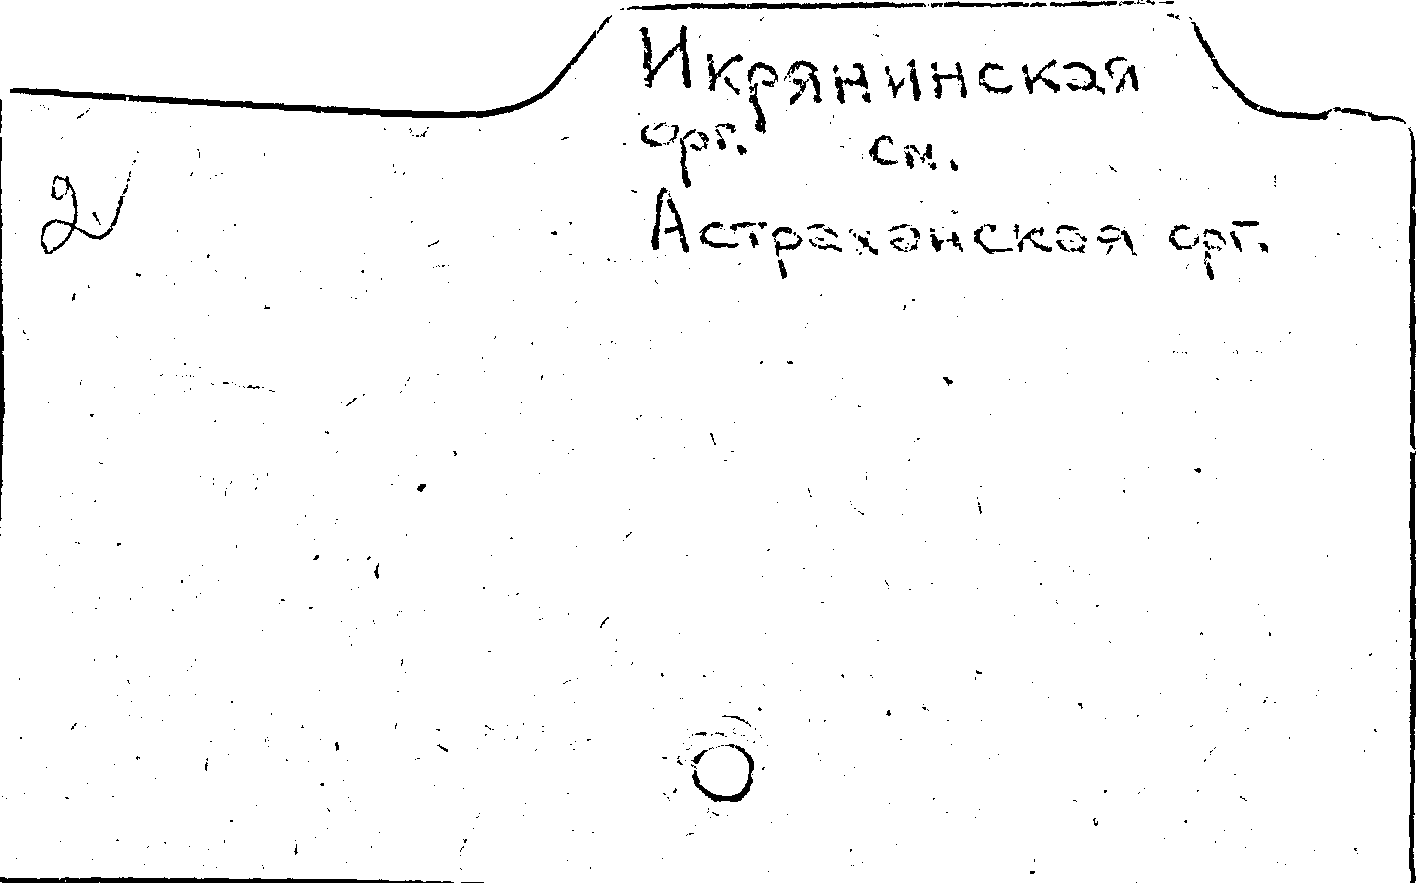 Икрянинская
орг. см.
Астраханская орг.
2